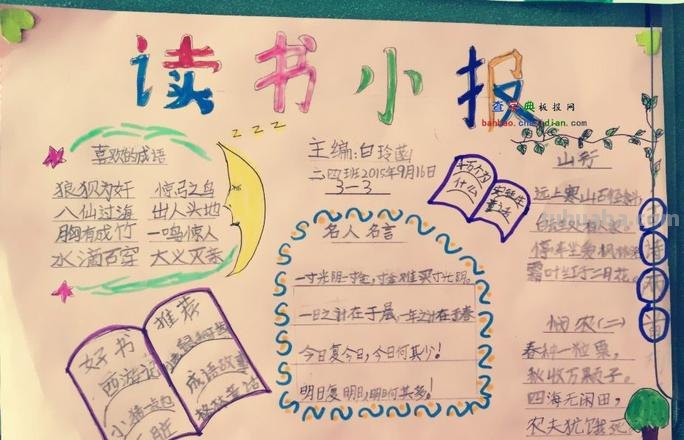 读书小报
查字典板报网
banbao.chazidian.com
喜欢的成语
狼狈为奸 惊弓之鸟
八仙过海 出人头地
胸有成竹 一鸣惊人
水滴石穿 大义灭亲
z z z
主编:白玲菡
二四班2015年9月16日
3-3
十万个为什么
安徒生童话
名人名言
一寸光阴一寸金,寸金难买寸光阴。
一日之计在于晨,一年之计在于春
今日复今日,今日何其少!
明日复明日,明日何其多!
好书
推荐
西游记
成语故事
格林童话
山行
远上寒山石径斜,
白云生处有人家。
停车坐爱枫林晚
霜叶红于二月花。
悯农(二)
春种一粒粟,
秋收万颗子。
四海无闲田,
农夫犹饿死
古诗两首